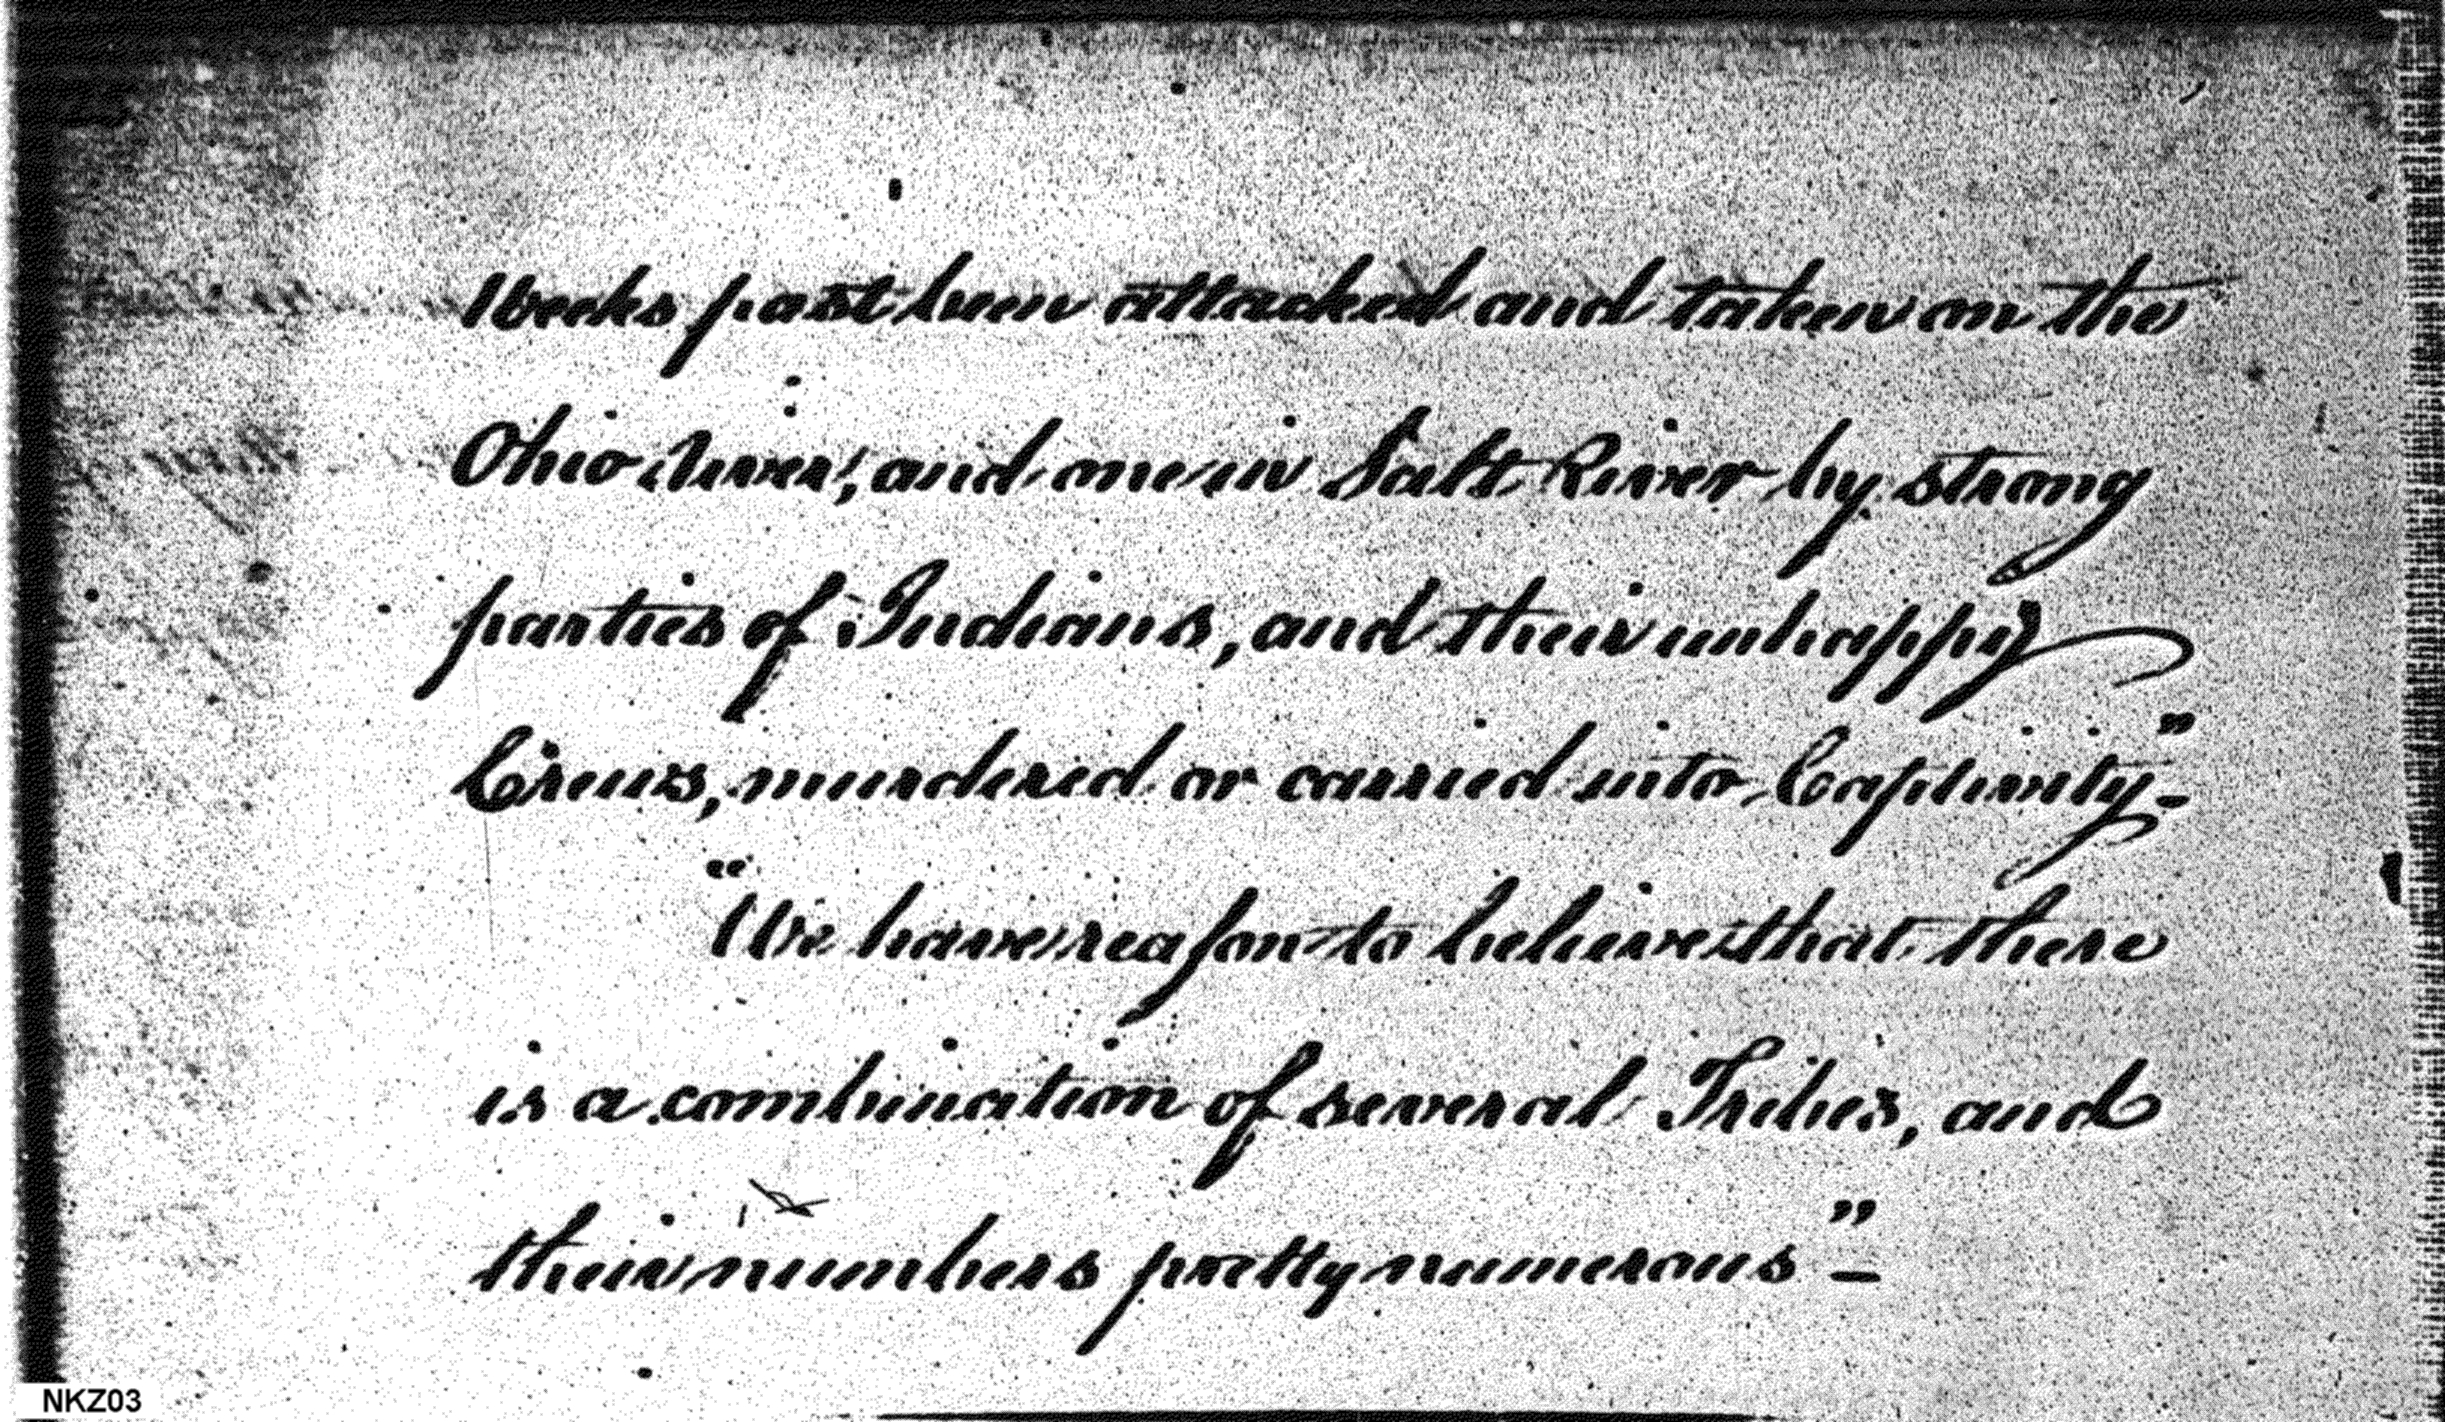 Weeks past been attacked and taken on the
Ohio River, and one in Salt River by strong
parties of Indians, and their unhappy
Crews, murdered or carried into Captivity"-
"We have reason to believe that there
is a combination of several Tribes, and
their numbers pretty numerous"-
NKZ03